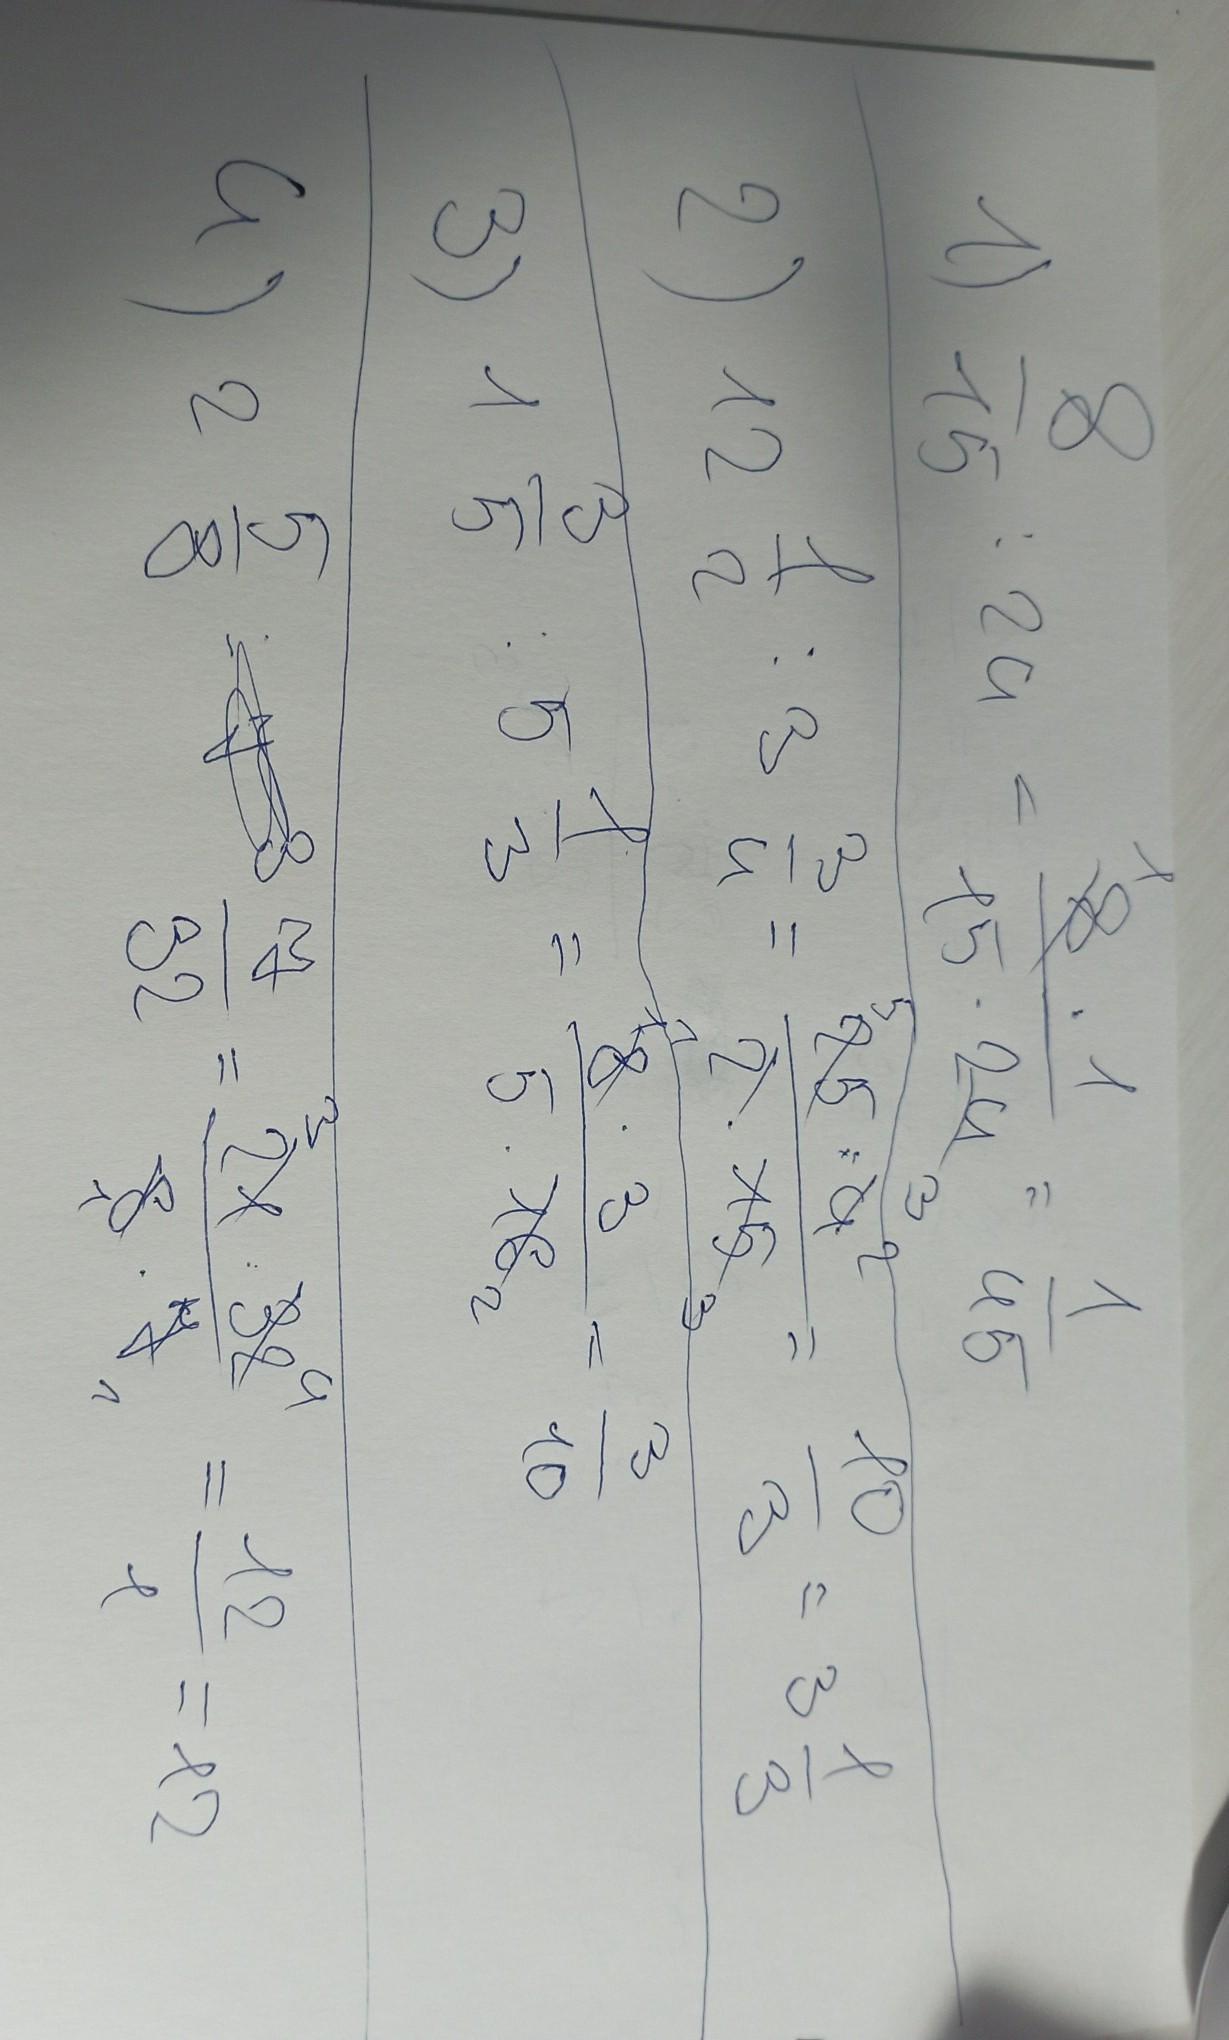 1) 8/15 : 24 = 8 · 1 / 15 · 24 = 1/45
2) 12 1/2 : 3 3/4 = 25 · 4 / 2 · 15 = 10/3 = 3 1/3
3) 1 3/5 : 5 1/3 = 8 · 3 / 5 · 16 = 3/10
4) 2 5/8 : 7/32 = 21 · 32 / 8 · 7 = 12/1 = 12